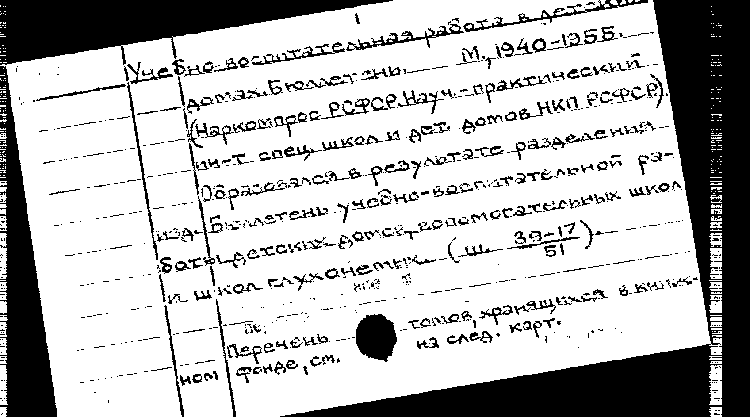 1
Учебно-воспитательная работа в детских
домах. Бюллетень. М., 1940-1955.
(Наркомпрос РСФСР. Науч.-практический
ин-т спец. школ и дет. домов НКП РСФСР)
Образовался в результате разделения
изд. Бюллетень учебно-воспитательной ра-
боты детских домов, вспомогательных школ
и школ глухонемых. (Ш 39-17/51).
Перечень томов, хранящихся в книж-
ном фонде, см. на след. карт.